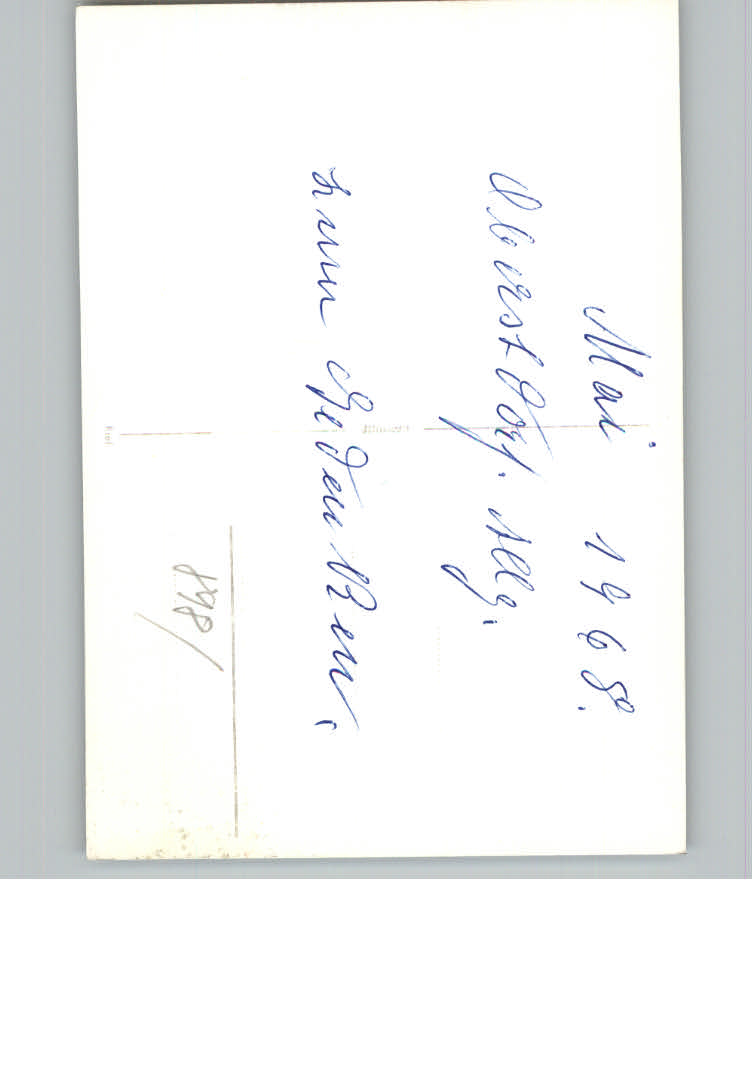 Mai 1968.
Oberstdorf. Allg.
zum Gedenken.
898/